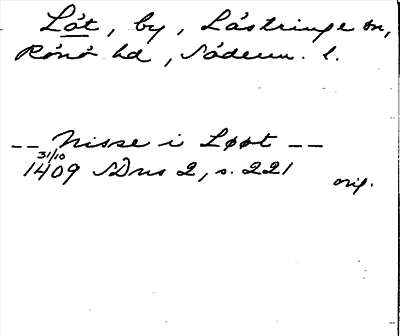 Låt, by, Lästringe sn,
Rönö hd, Söderm. l.
-- Nisse i Løøt --
31/10
1409 SDns 2, s. 221
orig.